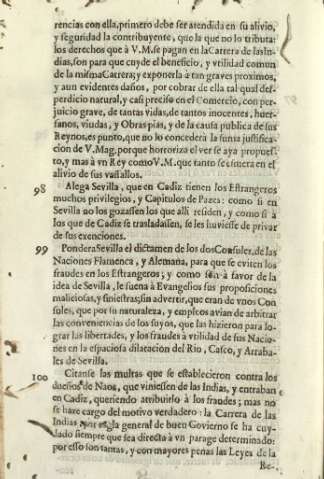 rencias con ella, primero debe ser atendida en su alivio,
y seguridad la contribuyente, que la que no lo tributa:
los derechos que à V.M. se pagan en la Carrera de las In-
dias, son para que cuyde el beneficio, y vtilidad comun
de la misma Carrera; y exponerla à tan graves proximos,
y aun evidentes daños, por cobrar de ella tal qual des-
perdicio natural, y casi preciso en el Comercio, con per-
juicio grave, de tantas vidas, de tantos inocentes, huer-
fanos, viudas, y Obras pias, y de la causa publica de sus
Reynos, es punto, que no lo concederà la suma justifica-
cion de V. Mag. porque horroriza el ver se aya propues-
to, y mas à vn Rey como V. M. que tanto se esmera en el
alivio de sus vassallos.
98 Alega Sevilla, que en Cadiz tienen los Estrangeros
muchos privilegios, y Capitulos de Pazes: como si en
Sevilla no los gozassen los que alli residen, y como si à
los que de Cadiz se trasladassen, se les huviesse de privar
de sus exenciones.
99 Pondera Sevilla el dictamen de los dos Consules, de las
Naciones Flamenca, y Alemana, para que se eviten los
fraudes en los Estrangeros; y como son à favor de la
idea de Sevilla, le suena à Evangelios sus proposiciones
maliciosas, y siniestras; sin advertir, que eran de vnos Con-
sules, que por su naturaleza, y empleos avian de arbitrar
las conveniencias de los suyos, que las hizieron para lo-
grar las libertades, y los fraudes à vtilidad de sus Nacio-
nes en la espaciosa dilatacion del Rio, Casco, y Arraba-
les de Sevilla.
100 Citanse las multas que se establecieron contra los
dueños de Naos, que viniessen de las Indias, y entraban
en Cadiz, queriendo atribuirlo à los fraudes; mas no
se haze cargo del motivo verdadero: la Carrera de las
Indias la general de buen Governo se ha cuy-
dado siempre que sea directa à vn parage determinado:
por esso son tantas, y con mayores penas las Leyes de la
Re-